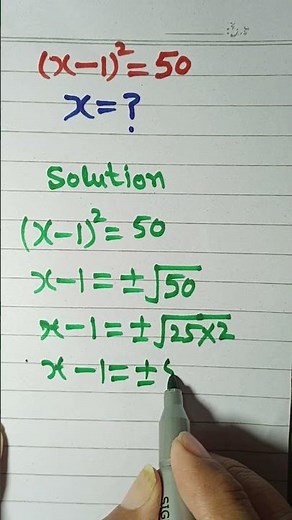 تاریخ:
(x-1)²=50
x=?
Solution
(x-1)²=50
x-1=±√50
x-1=±√25×2
x-1=±5
SIG